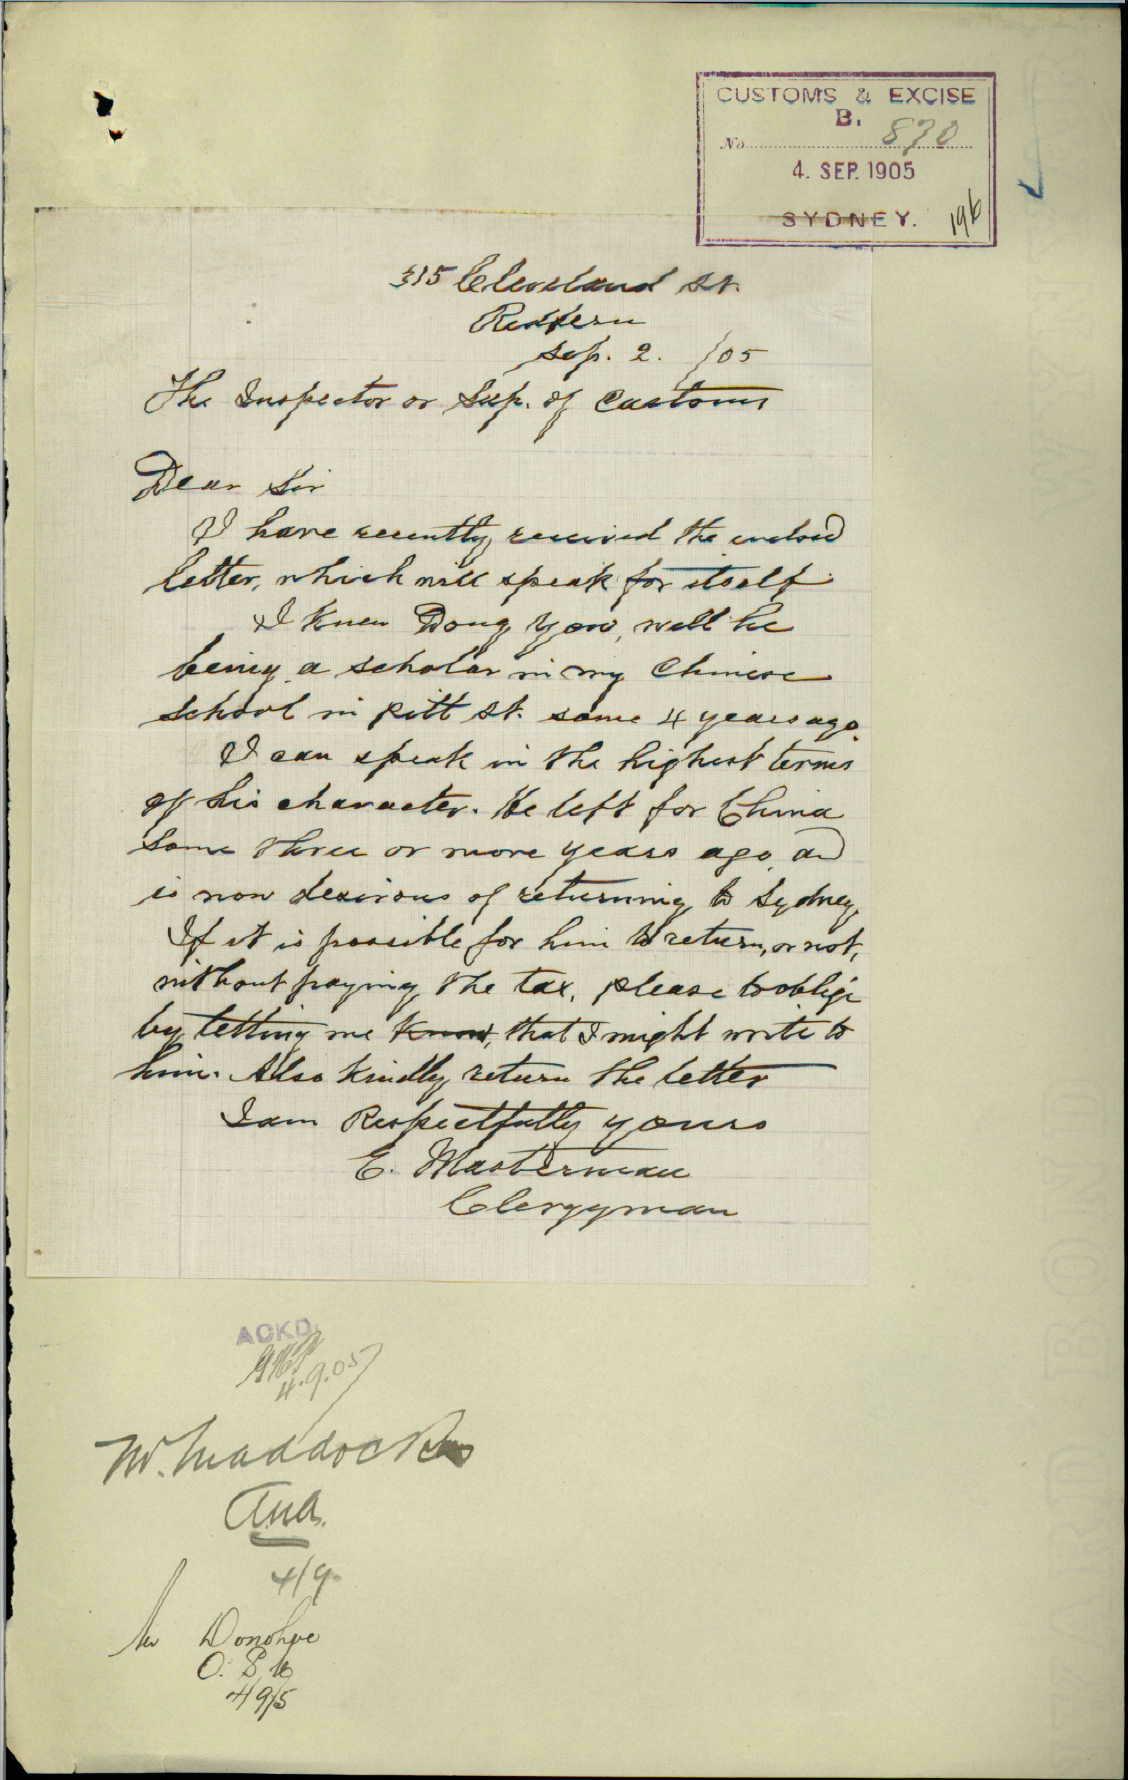 CUSTOMS & EXCISE
B.
No 870
4. SEP. 1905
SYDNEY. 196
315 Cleveland St.
Redfern
Sep. 2. /05
The Inspector or Sup. of Customs
Dear Sir
I have recently received the enclosed
letter, which will speak for itself.
I knew Dong Yow, well he
being a scholar in my Chinese
School in Pitt St. some 4 years ago.
I can speak in the highest terms
of his character. He left for China
some three or more years ago, and
is now desirous of returning to Sydney,
If it is possible for him to return, or not,
without paying the tax, please to oblige
by letting me know, that I might write to
him. Also kindly return the letter
I am Respectfully yours
E. Masterman
Clergyman
ACKD.
4.9.05
Mr. Maddocks
4/9
Mr Donohoe
4/9/5